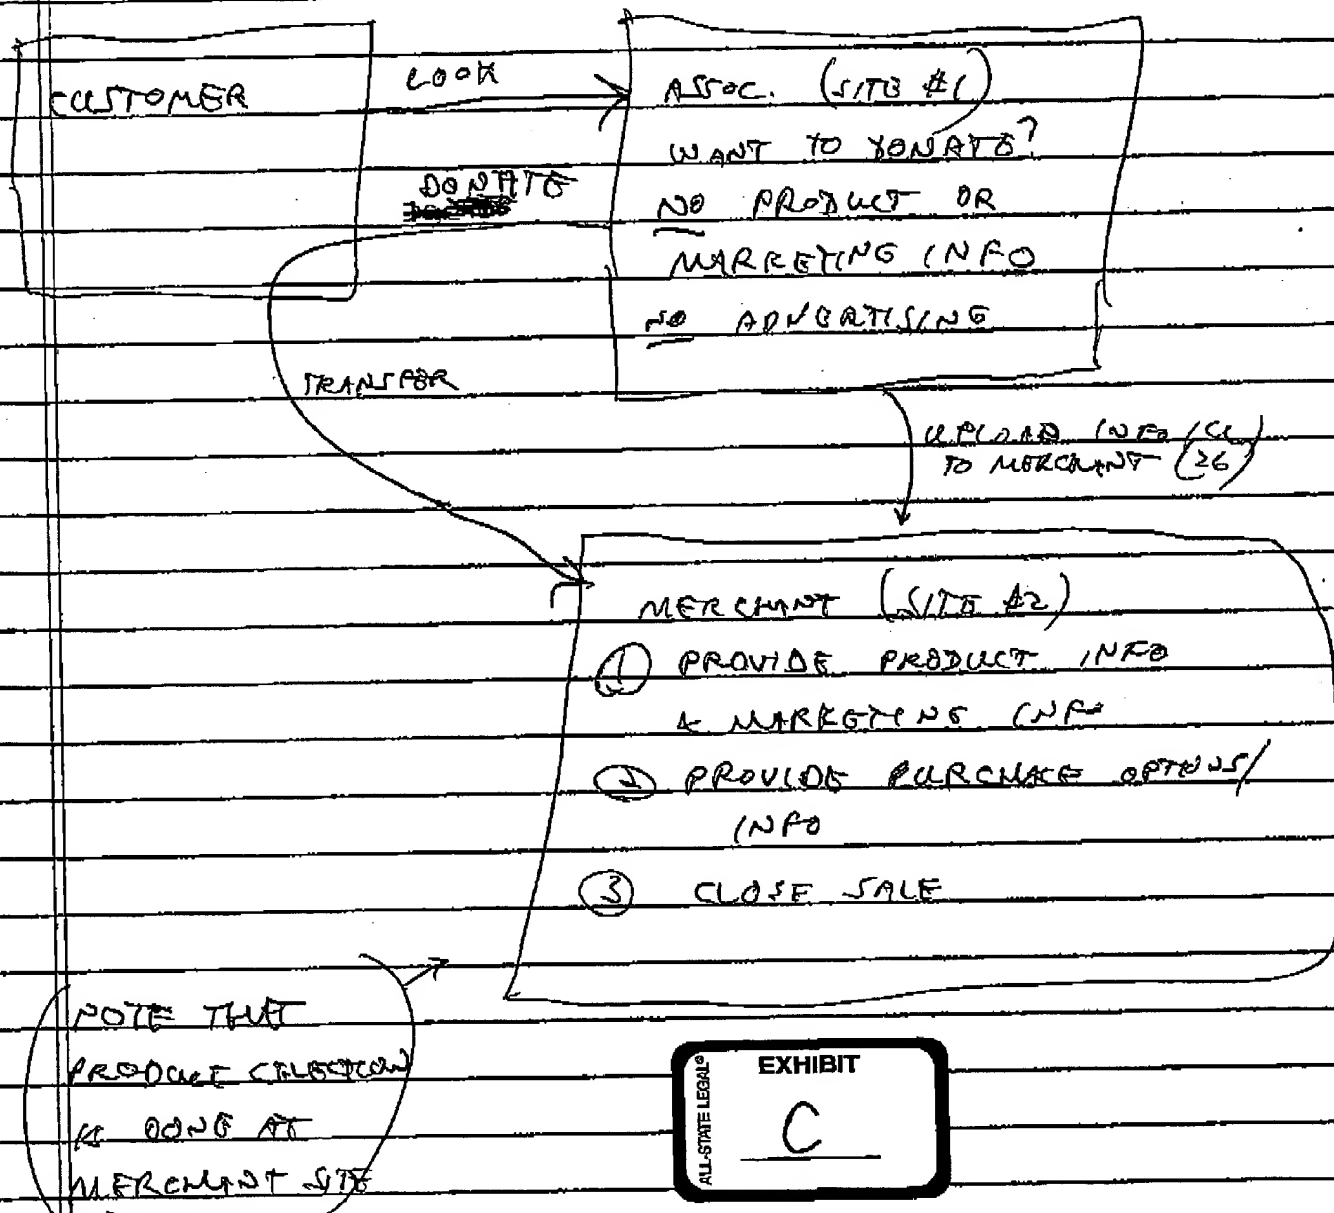 CUSTOMER
LOOK
ASSOC. (SITE #1)
WANT TO DONATE?
NO PRODUCT OR
MARKETING INFO
NO ADVERTISING
DONATE
TRANSFER
UPLOAD INFO
TO MERCHANT (26)
MERCHANT (SITE #2)
① PROVIDE PRODUCT INFO
& MARKETING INFO
② PROVIDE PURCHASE OPTIONS/
INFO
③ CLOSE SALE
NOTE THAT
PRODUCT SELECTION
IS DONE AT
MERCHANT SITE
ALL-STATE LEGAL®
EXHIBIT
C